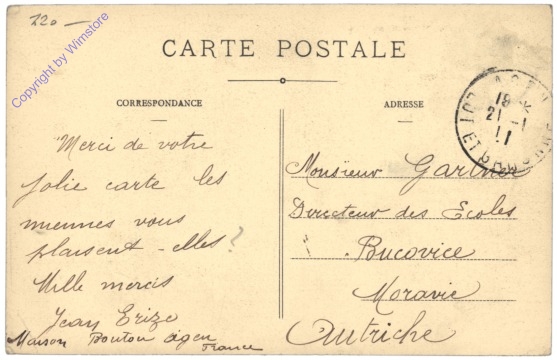 220 —
Copyright by Wimstore
CARTE POSTALE
CORRESPONDANCE
ADRESSE
AGEN
18
21 - 1
11
LOT ET GARONNE
Merci de votre
jolie carte les
miennes vous
plaisent - elles ?
Mille mercis
Jean Erize
Maison Boutou Agen
France
Monsieur Gartner
Directeur des Ecoles
Bucovice
Moravie
Autriche